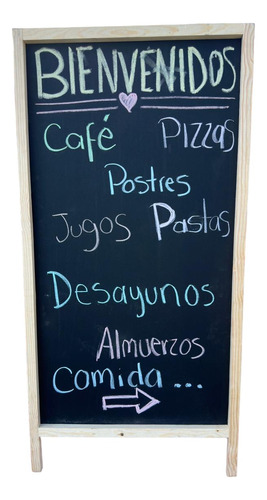 BIENVENIDOS
Café PIZZAS
Postres
Jugos Pastas
Desayunos
Almuerzos
Comida ...